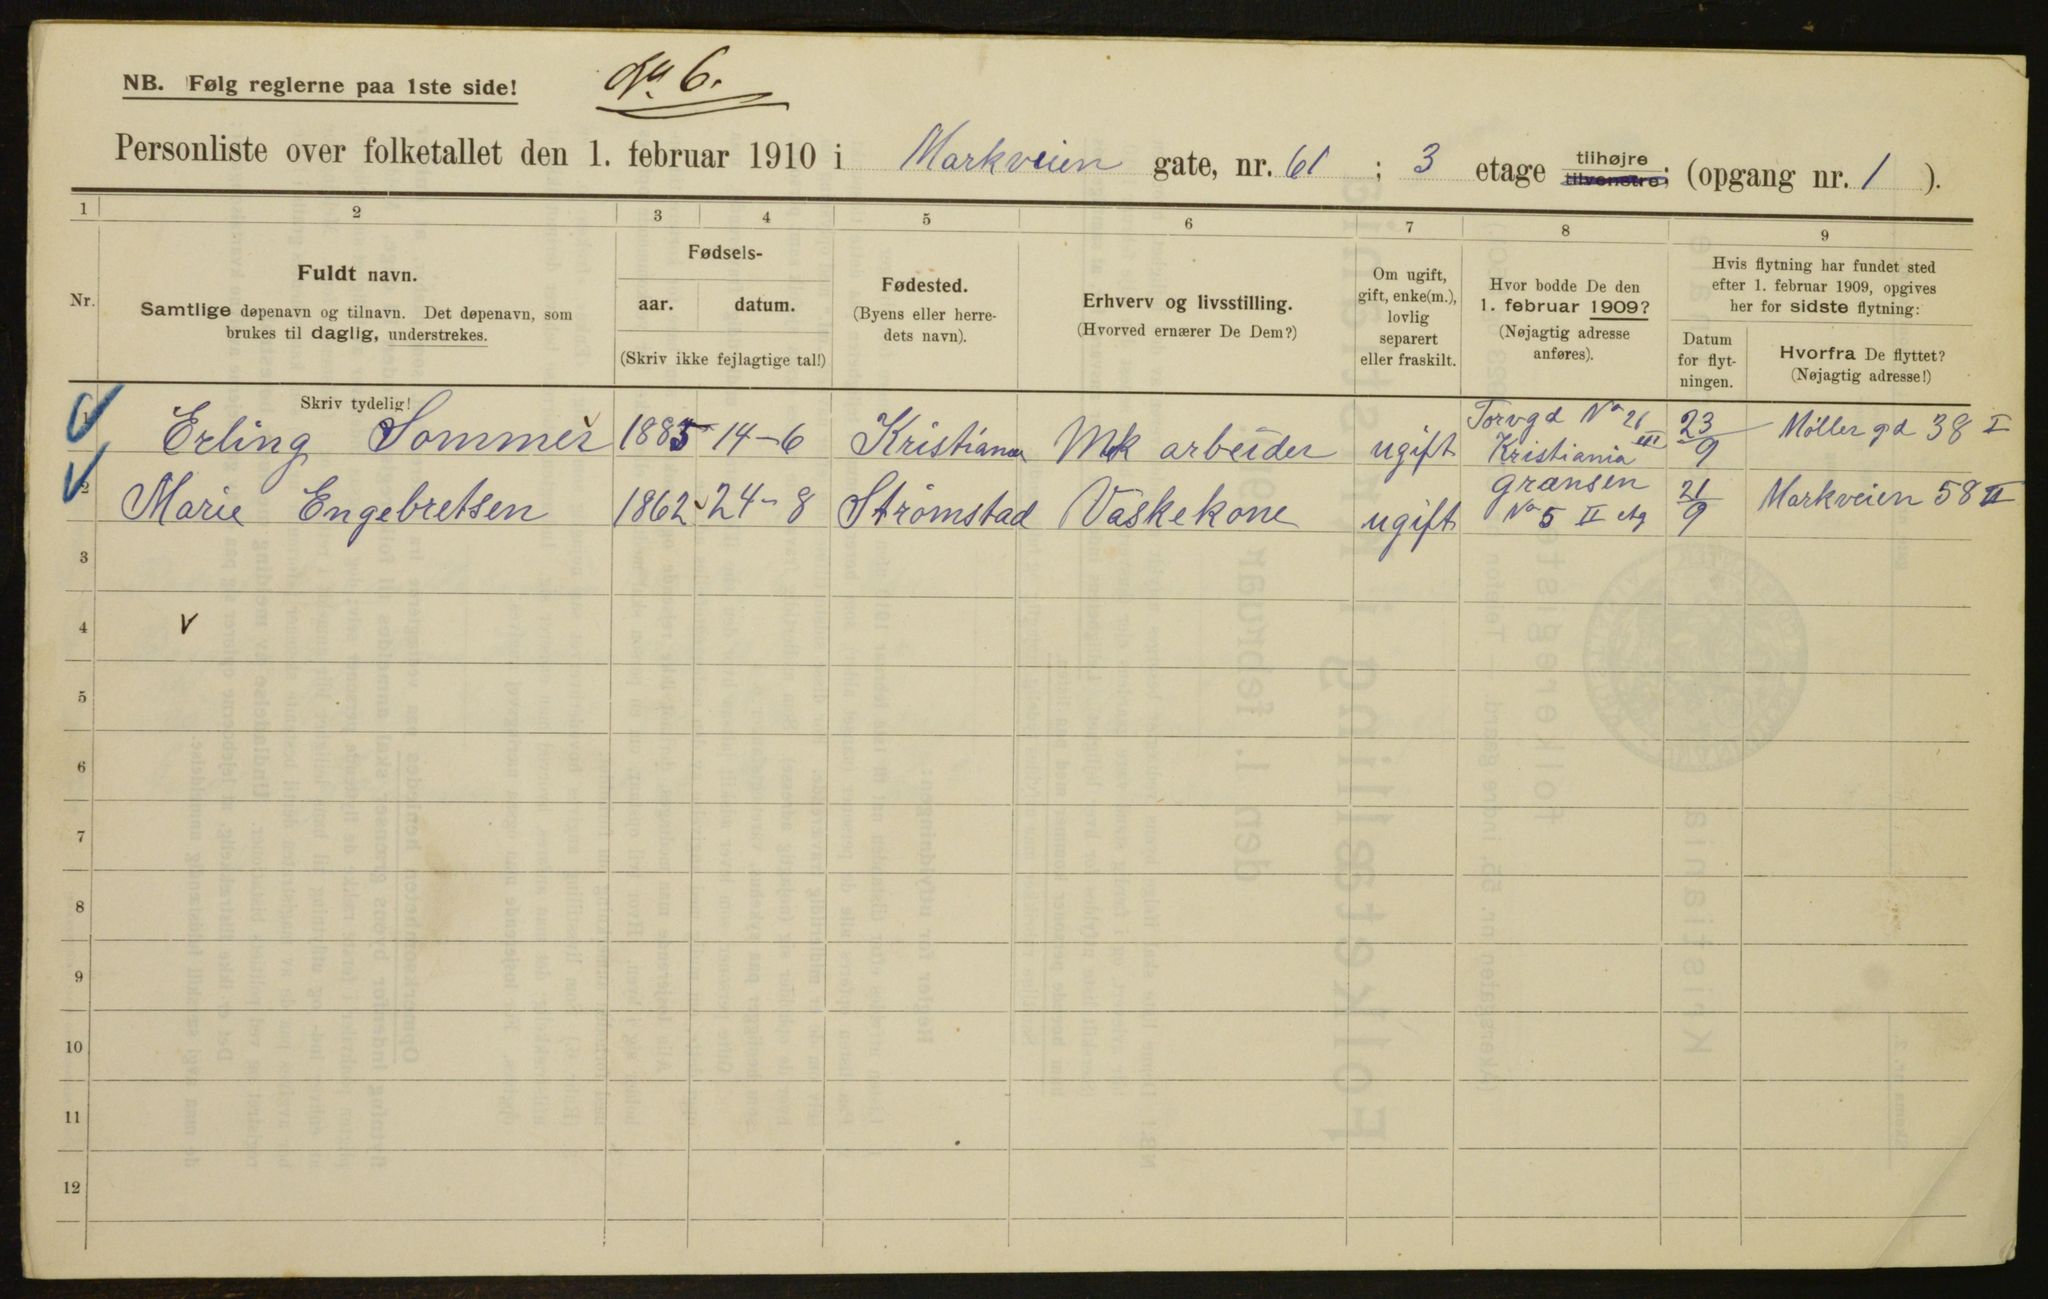 No. 6.
NB. Følg reglerne paa 1ste side!
Personliste over folketallet den 1. februar 1910 i Markveien gate, nr. 61 ; 3 etage tilhøjre tilvenstre; (opgang nr. 1 ).
1 2 3 4 5 6 7 8 9
Nr.
Fuldt navn.
Samtlige døpenavn og tilnavn. Det døpenavn, som
brukes til daglig, understrekes.
Skriv tydelig!
Fødsels-
aar. datum.
(Skriv ikke fejlagtige tal!)
Fødested.
(Byens eller herre-
dets navn).
Erhverv og livsstilling.
(Hvorved ernærer De Dem?)
Om ugift,
gift, enke(m.),
lovlig
separert
eller fraskilt.
Hvor bodde De den
1. februar 1909?
(Nøjagtig adresse
anføres).
Hvis flytning har fundet sted
efter 1. februar 1909, opgives
her for sidste flytning:
Datum
for flyt-
ningen.
Hvorfra De flyttet?
(Nøjagtig adresse!)
1 Erling Sommer 1885 14-6 Kristiania Mek arbeider ugift Torvgd No 21 III Kristiania 23/9 Møller gd 38 I
2 Marie Engebretsen 1862 24-8 Strømstad Vaskekone ugift Grænsen No 5 II etg 21/9 Markveien 58 II
3
4
5
6
7
8
9
10
11
12